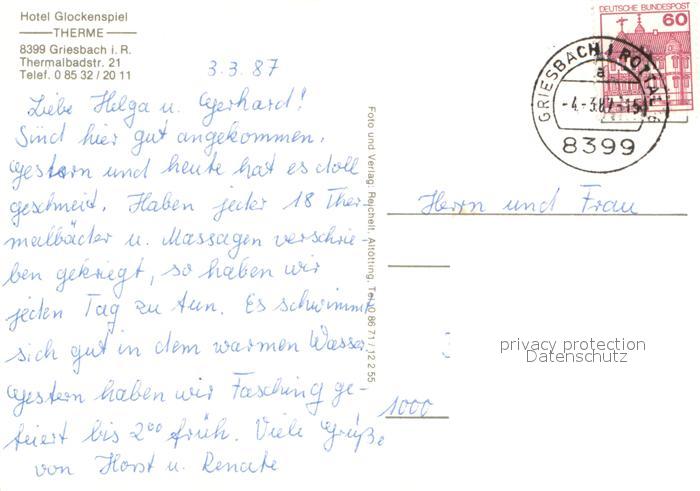 Hotel Glockenspiel
THERME
8399 Griesbach i. R.
Thermalbadstr. 21
Telef. 0 85 32 / 20 11
3.3.87
Liebe Helga u. Gerhard!
Sind hier gut angekommen.
Gestern und heute hat es doll
geschneit. Haben jeder 18 Ther-
malbäder u. Massagen verschrie-
ben gekriegt, so haben wir
jeden Tag zu tun. Es schwimmt
sich gut in dem warmen Wasser.
Gestern haben wir Fasching ge-
feiert bis 2⁰⁰ früh. Viele Grüße
von Horst u. Renate
Foto und Verlag: Reichelt, Altötting, Tel. 0 86 71 / 12 2 55
DEUTSCHE BUNDESPOST
60
GRIESBACH i ROTTAL
a
-4.-3.87-15
8399
Herrn und Frau
1000
privacy protection
Datenschutz